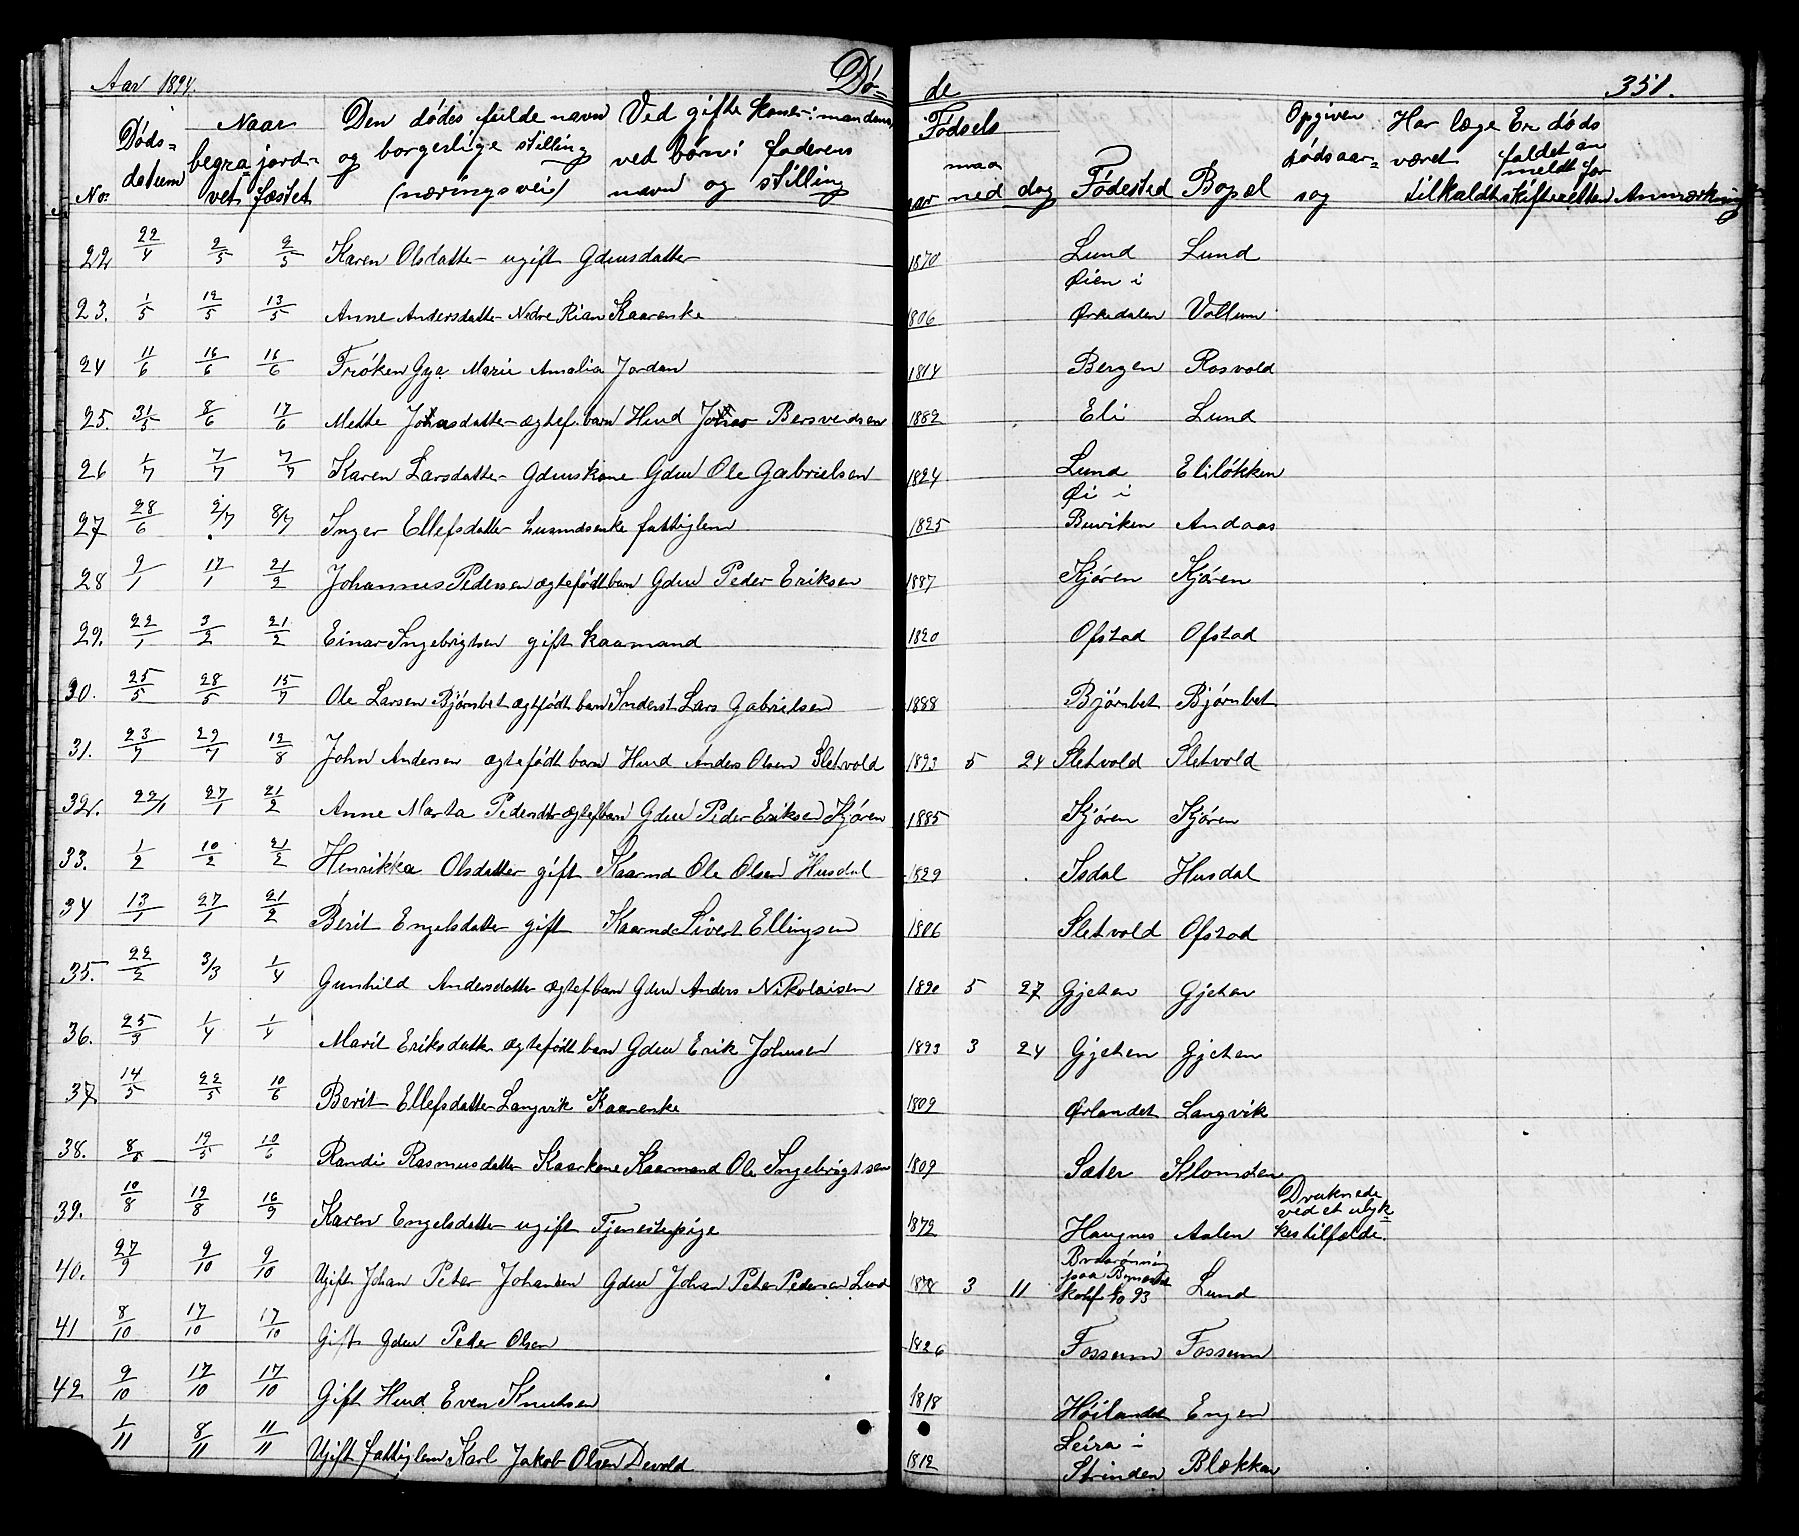 Aar 1894. Dø= de 351.
No. Døds= datum Naar begra= vet jord= fæstet Den dødes fulde navn og borgerlige stilling (næringsvei) Ved gifte koner: mandens ved børn: faderens navn og stilling Fødsels aar maa ned dag Fødested Bopel Opgiven dødsaar= sag Har læge været tilkaldt Er døds faldet an meldt for skifteretten Anmærkning
22 22/4 2/5 2/5 Karen Olsdatter ugift Gdmsdatter 1870 Lund Lund
23. 1/5 12/5 13/5 Anne Andersdatter Nedre Rian Kaarenke 1806 Øien i Ørkedalen Vollum
24 11/6 16/6 16/6 Frøken Gya Marie Amalia Jordan 1814 Bergen Rosvold
25. 31/5 8/6 17/6 Mette Johnsdatter ægtef. barn Husmd Johas Bersvendsen 1882 Eli Lund
26 1/7 7/7 7/7 Karen Larsdatter Gdmskone Gdm Ole Gabrielsen 1824 Lund Eliløkken
27 28/6 2/7 8/7 Inger Ellefsdatter husmdsenke fattiglem 1825 Øi i Buviken Andaas
28 9/1 17/1 21/2 Johannes Pedersen ægtefødt barn Gdm Peder Eriksen 1887 Kjøren Kjøren
29. 22/1 3/2 21/2 Einar Ingebrigtsen gift kaarmand 1820 Ofstad Ofstad
30. 25/5 28/5 15/7 Ole Larsen Bjørnbet ægtefødt barn Inderst Lars Gabrielsen 1888 Bjørnbet Bjørnbet
31. 23/7 29/7 12/8 John Andersen ægtefødt barn Husmd Anders Olsen Sletvold 1893 5 24 Sletvold Sletvold
32. 22/1 27/1 21/2 Anne Marta Pedersdtr ægtef barn Gdm Peder Eriksen Kjøren 1885 Kjøren Kjøren
33. 1/2 10/2 21/2 Henrikka Olsdatter gift Kaarmd Ole Olsen Husdal 1829 Isdal Husdal
34 13/1 27/1 21/2 Berit Engelsdatter gift Kaarmd Sivert Ellingsen 1806 Sletvold Ofstad
35. 22/2 3/3 1/4 Gunhild Andersdatter ægtef barn Gdm Anders Nikolaisen 1890 5 27 Gjeten Gjeten
36. 25/3 1/4 1/4 Marit Eriksdatter ægtefødt barn Gdm Erik Johnsen 1893 3 24 Gjeten Gjeten
37 14/5 22/5 10/6 Berit Ellefsdatter Langvik Kaarenke 1809 Ørlandet Langvik
38. 8/5 19/5 10/6 Randi Rasmusdatter Kaarkone Kaarmand Ole Ingebrigtsen 1809 Sæter Klomsten
39. 10/8 19/8 16/9 Karen Engelsdatter ugift Tjenestepige 1872 Haugnes Aalen Druknede ved et ulyk= kestilfælde.
40. 27/9 9/10 9/10 Ugift Johan Peter Johansen Gdm Johan Peter Pedersen Lund 1878 3 11 paa konf. 93 Lund
41 8/10 17/10 17/10 Gift Gdm Peder Olsen 1826 Fossum Fossum
42 9/10 17/10 17/10 Gift Husmd Even Knutsen 1818 Høilandet Engen
1/11 8/11 11/11 Ugift fattiglem Karl Jakob Olsen Devold 1812 Leira i Strinden Blekkan